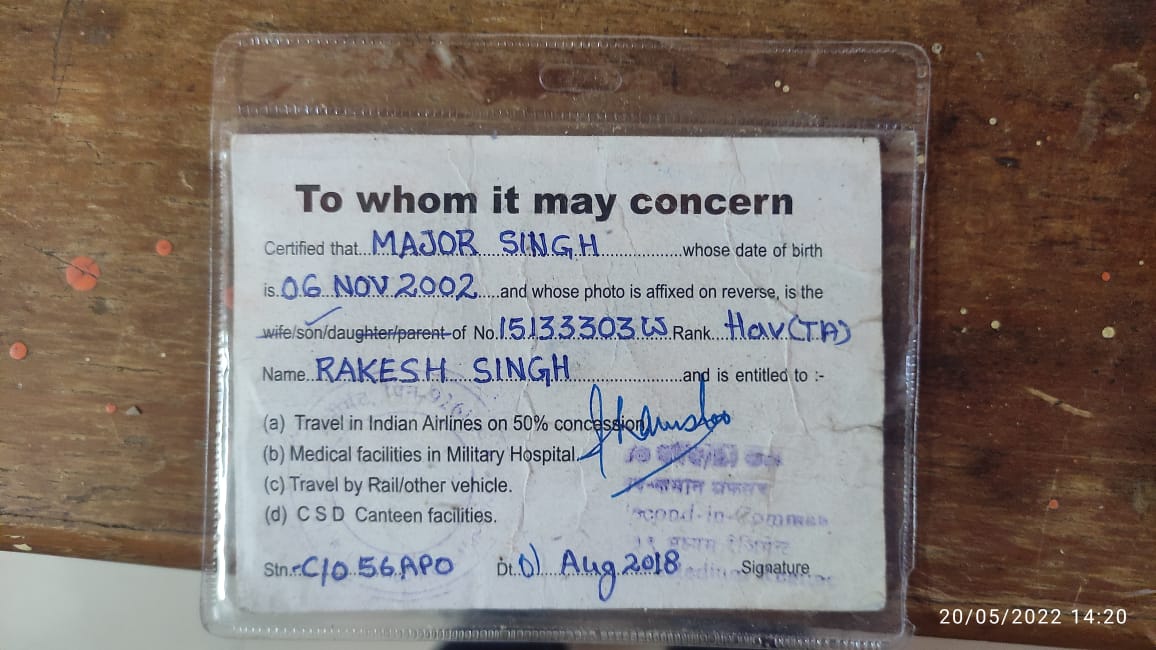 To whom it may concern
Certified that MAJOR SINGH whose date of birth
is 06 NOV 2002 and whose photo is affixed on reverse, is the
wife/son/daughter/parent of No. 15133303W Rank Hav(TA)
Name RAKESH SINGH and is entitled to :-
(a) Travel in Indian Airlines on 50% concession
(b) Medical facilities in Military Hospital.
(c) Travel by Rail/other vehicle.
(d) C S D Canteen facilities.
Stn:- C/O 56 APO Dt. 01 Aug 2018 Signature
20/05/2022 14:20